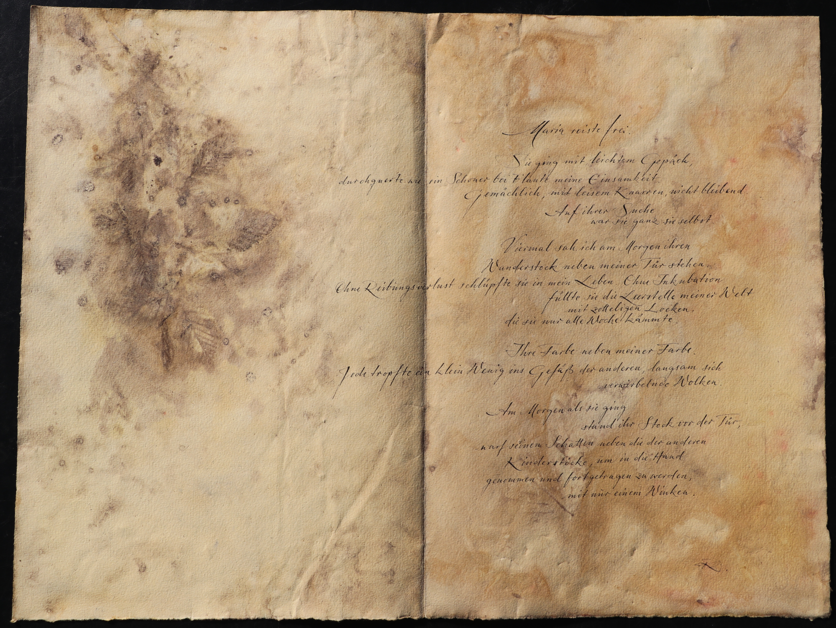 Maria reiste frei
Sie ging mit leichtem Gepäck,
durchquerte wie ein Schoner bei Flaute meine Einsamkeit
Gemächlich, mit leisem Knarren, nicht bleibend
Auf ihrer Suche
war sie ganz sie selbst
Viermal sah ich am Morgen ihren
Wanderstock neben meiner Tür stehen.
Ohne Reibungsverlust schlüpfte sie in mein Leben. Ohne Inkubation
füllte sie die Leerstelle meiner Welt
mit zotteligen Locken,
die sie nur alle Woche kämmte.
Ihre Farbe neben meiner Farbe.
Jede tropfte ein klein Wenig ins Gefäß der anderen, langsam sich
verwirbelnde Wolken
Am Morgen als sie ging
stand ihr Stock vor der Tür,
warf seinen Schatten neben die der anderen
um in die Hand
genommen und fortgetragen zu werden,
mit nur einem Winken.